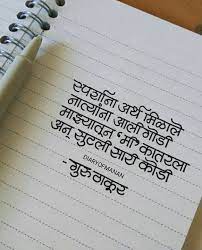 स्पर्शांना अर्थ मिळाले
नात्यांना आली गोडी
माझ्यातून 'मी' कातरला
अन् सुटली सारी कोडी
DIARYOFMANAN
- गुरु ठाकूर